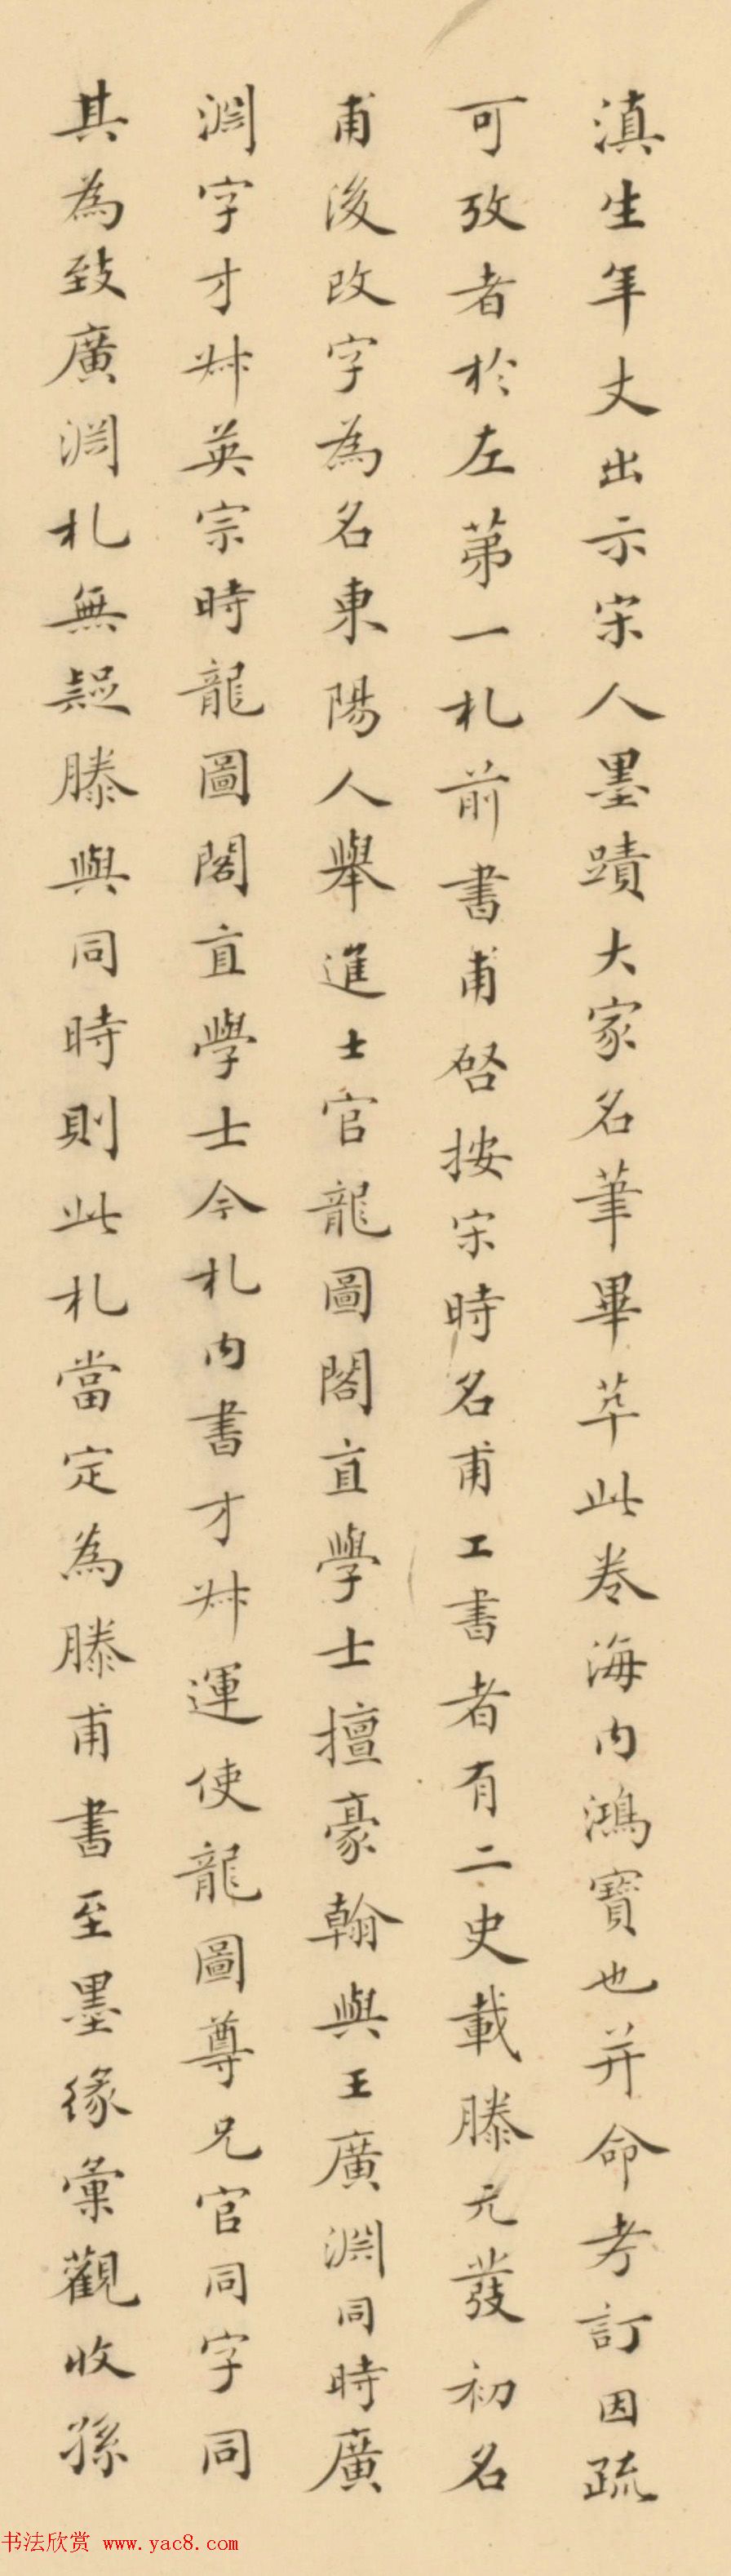 滇生年丈出示宋人墨蹟大家名筆畢萃此卷海内鴻寶也并命考訂因疏
可攷者於左第一札前書甫啓按宋時名甫工書者有二史載滕元發初名
甫後改字為名東陽人舉進士官龍圖閣直學士擅豪翰與王廣淵同時廣
淵字才叔英宗時龍圖閣直學士今札内書才叔運使龍圖尊兄官同字同
其為致廣淵札無疑滕與同時則此札當定為滕甫書至墨緣彙觀收孫
书法欣赏 www.yac8.com